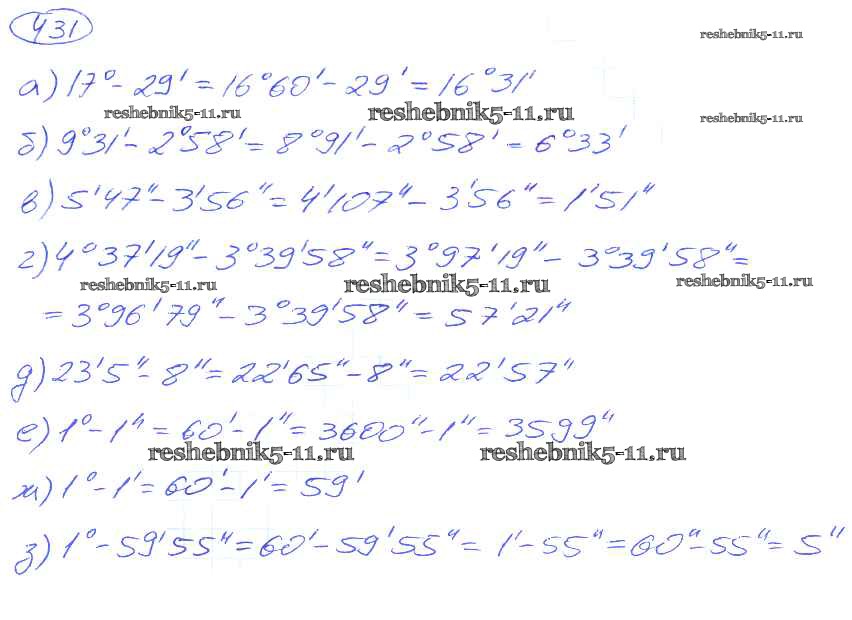 431
reshebnik5-11.ru
а) 17° - 29' = 16°60' - 29' = 16°31'
reshebnik5-11.ru reshebnik5-11.ru reshebnik5-11.ru
б) 9°31' - 2°58' = 8°91' - 2°58' = 6°33'
в) 5'47" - 3'56" = 4'107" - 3'56" = 1'51"
г) 4°37'19" - 3°39'58" = 3°97'19" - 3°39'58" =
reshebnik5-11.ru reshebnik5-11.ru reshebnik5-11.ru
= 3°96'79" - 3°39'58" = 57'21"
д) 23'5" - 8" = 22'65" - 8" = 22'57"
е) 1° - 1" = 60' - 1" = 3600" - 1" = 3599"
reshebnik5-11.ru reshebnik5-11.ru
ж) 1° - 1' = 60' - 1' = 59'
з) 1° - 59'55" = 60' - 59'55" = 1' - 55" = 60" - 55" = 5"